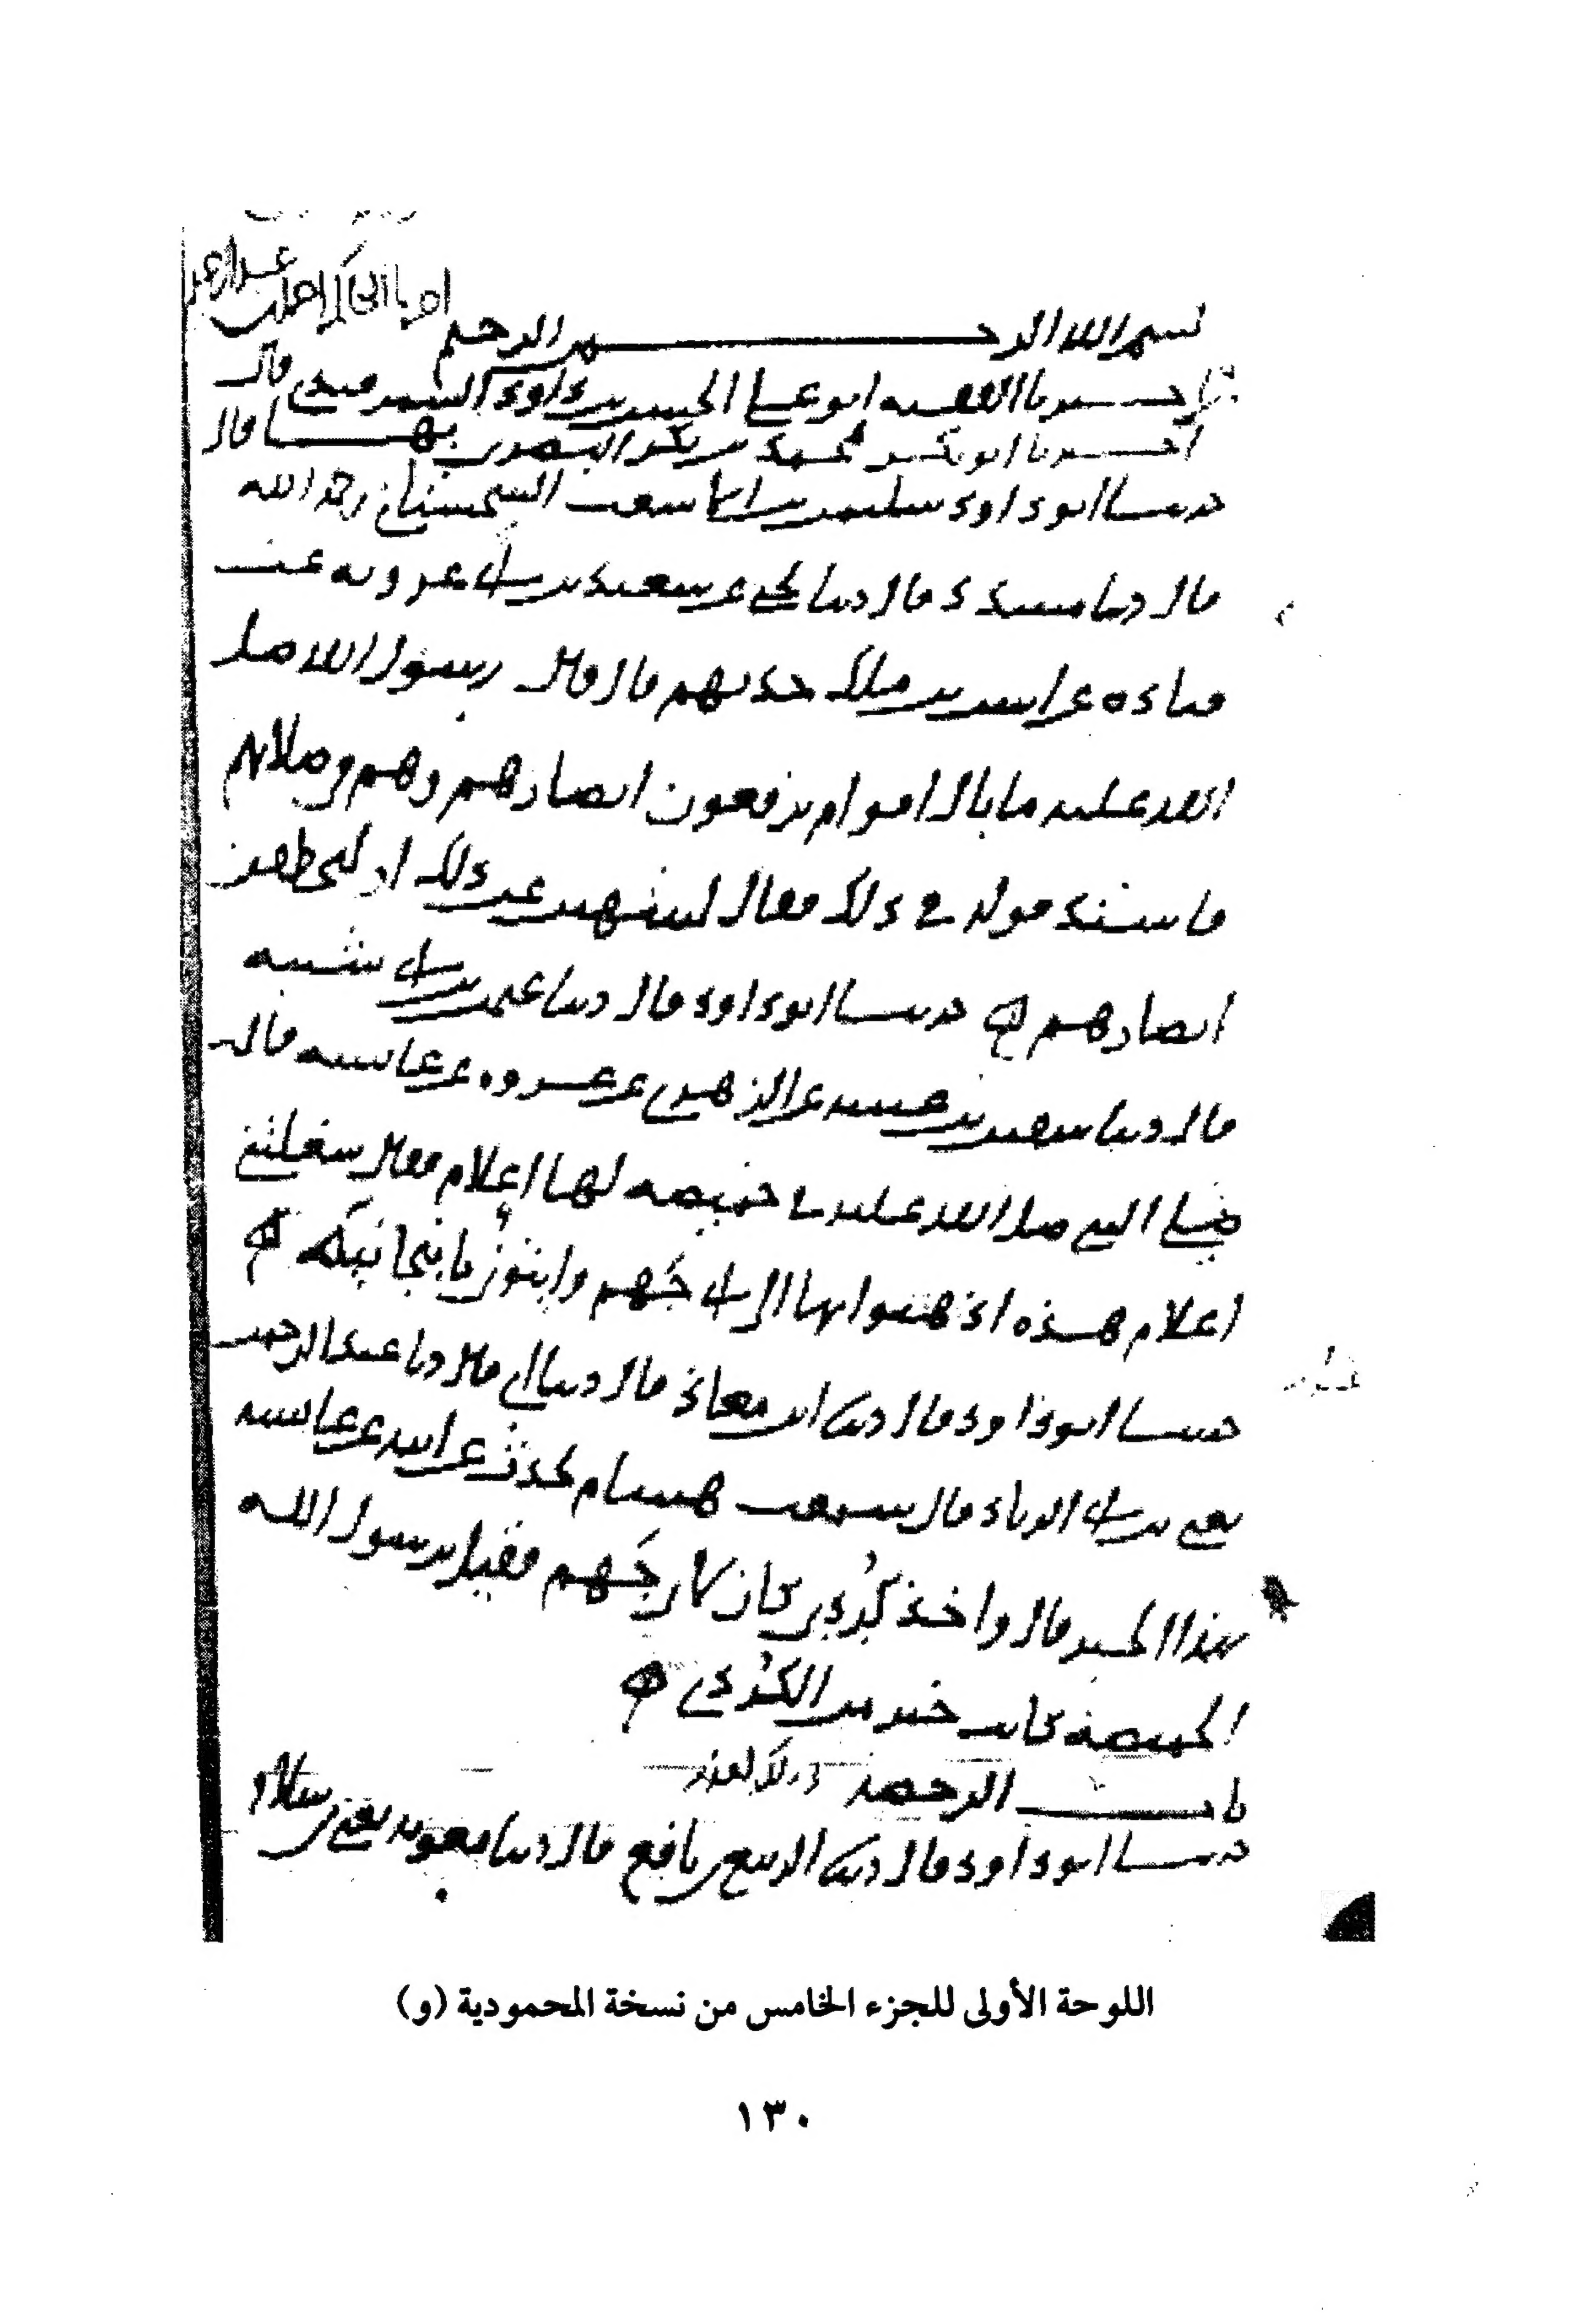 بسم الله الرحمن الرحيم
اخبرنا الفقيه ابو علي الحسن بن داود السمرقندي قال
اخبرنا ابو بكر محمد بن بكر البصري بها قال
حدثنا ابو داود سليمن بن الاشعث السجستاني رحمه الله
قال دثنا مسدد قال دثنا يحيى عن سعيد بن ابي عروبه عن
قتاده عن انس بن ملك حدثهم قال قال رسول الله صلى
الله عليه ما بال اقوام يرفعون ابصارهم وهم في صلاتهم
فاشتد قوله في ذلك فقال لينتهين عن ذلك او لتخطفن
ابصارهم ه حدثنا ابو داود قال دثنا عثمن بن ابي شيبه
قال دثنا سفين بن عيينه عن الزهري عن عروه عن عائشه قالت
صلى النبي صلى الله عليه في خميصه لها اعلام فقال شغلتني
اعلام هذه اذهبوا بها الى ابي جهم واتوني بانبجانيته ه
حدثنا ابو داود قال دثنا ابن معاذ قال دثنا ابي قال دثنا عبد الرحمن
يعني بن ابي الزناد قال سمعت هشام يحدث عن ابيه عن عائشه
بهذا الخبر قال واخذ كرديا كان لابي جهم فقيل يرسول الله
الخميصه كانت خير من الكردي ه
باب الرخصة في ذلك لعذر
حدثنا ابو داود قال دثنا الربيع بن نافع قال دثنا معويه يعني بن سلام
اللوحة الأولى للجزء الخامس من نسخة المحمودية (و)
١٣٠